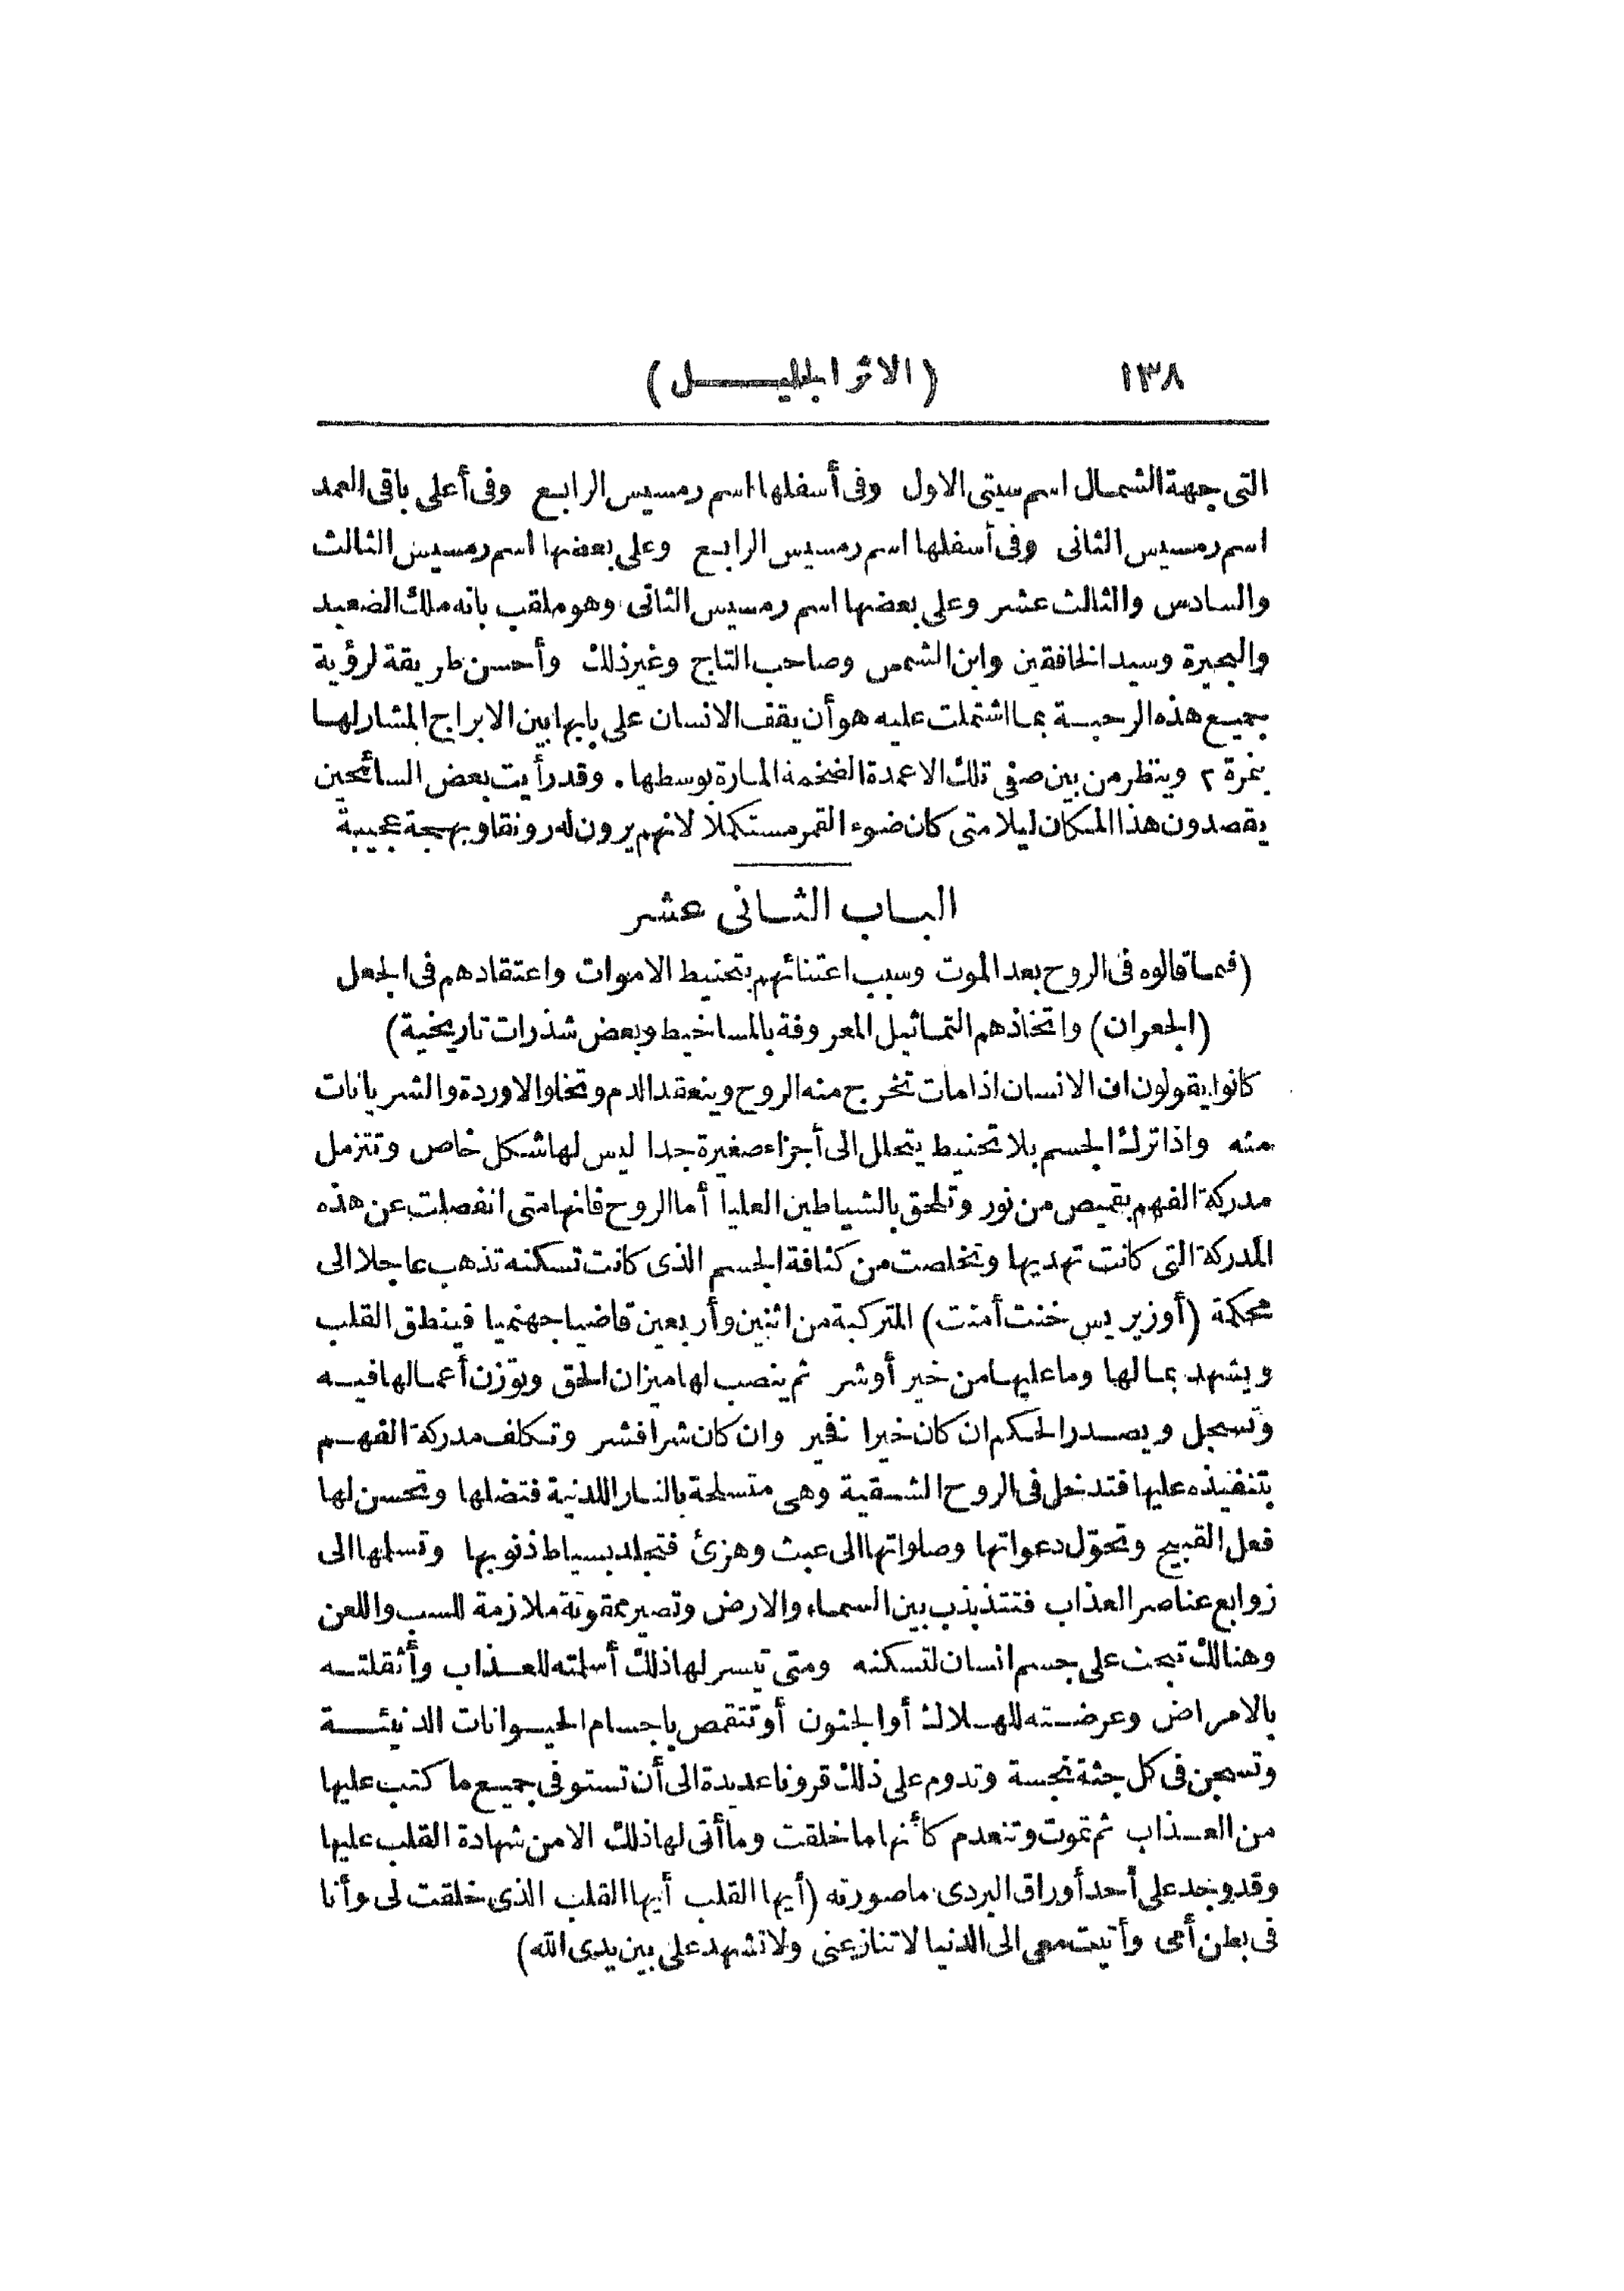 ١٣٨ (الاثر الجليل)
التى جهة الشمال اسم سيتى الاول وفى أسفلها اسم رمسيس الرابع وفى أعلى باقى العمد
اسم رمسيس الثانى وفى أسفلها اسم رمسيس الرابع وعلى بعضها اسم رمسيس الثالث
والسادس والثالث عشر وعلى بعضها اسم رمسيس الثانى وهو ملقب بانه ملك الصعيد
والبحيرة وسيد الخافقين وابن الشمس وصاحب التاج وغير ذلك وأحسن طريقة لرؤية
جميع هذه الرحبة بما اشتملت عليه هو أن يقف الانسان على بابها بين الابراج المشار لها
بنمرة ٢ وينظر من بين صفى تلك الاعمدة الضخمة المارة بوسطها . وقد رأيت بعض السائحين
يقصدون هذا المكان ليلا متى كان ضوء القمر مستكملا لانهم يرون له رونقا وبهجة عجيبة
الباب الثانى عشر
(فيما قالوه فى الروح بعد الموت وسبب اعتنائهم بتحنيط الاموات واعتقادهم فى الجعل
(الجعران) واتخاذهم التماثيل المعروفة بالمساخيط وبعض شذرات تاريخية)
كانوا يقولون ان الانسان اذا مات تخرج منه الروح وينعقد الدم وتخلو الاوردة والشريانات
منه واذا ترك الجسم بلا تحنيط يتحلل الى أجزاء صغيرة جدا ليس لها شكل خاص وتتزمل
مدركة الفهم بقميص من نور وتلحق بالشياطين العليا أما الروح فانها متى انفصلت عن هذه
المدركة التى كانت تهديها وتخلصت من كثافة الجسم الذى كانت تسكنه تذهب عاجلا الى
محكمة (أوزيريس خنت أمنت) المتركبة من اثنين وأربعين قاضيا جهنميا فينطق القلب
ويشهد بما لها وما عليها من خير أو شر ثم ينصب لها ميزان الحق وتوزن أعمالها فيه
وتسجل ويصدر الحكم ان كان خيرا فخير وان كان شرا فشر وتكلف مدركة الفهم
بتنفيذه عليها فتدخل فى الروح الشقية وهى متسلحة بالنار اللدنية فتضلها وتحسن لها
فعل القبيح وتحوّل دعواتها وصلواتها الى عبث وهزئ فتجلد بسياط ذنوبها وتسلمها الى
زوابع عناصر العذاب فتتذبذب بين السماء والارض وتصير ممقوتة ملازمة للسب واللعن
وهنالك تبحث على جسم انسان لتسكنه ومتى تيسر لها ذلك أسلمته للعذاب وأثقلته
بالامراض وعرضته للهلاك أو الجنون أو تتقمص باجسام الحيوانات الدنيئة
وتسجن فى كل جثة نجسة وتدوم على ذلك قرونا عديدة الى أن تستوفى جميع ما كتب عليها
من العذاب ثم تموت وتنعدم كأنها ما خلقت وما أتى لها ذلك الا من شهادة القلب عليها
وقد وجد على أحد أوراق البردى ما صورته (أيها القلب أيها القلب الذى خلقت لى وأنا
فى بطن أمى وأتيت معى الى الدنيا لا تنازعنى ولا تشهد على بين يدى الله)